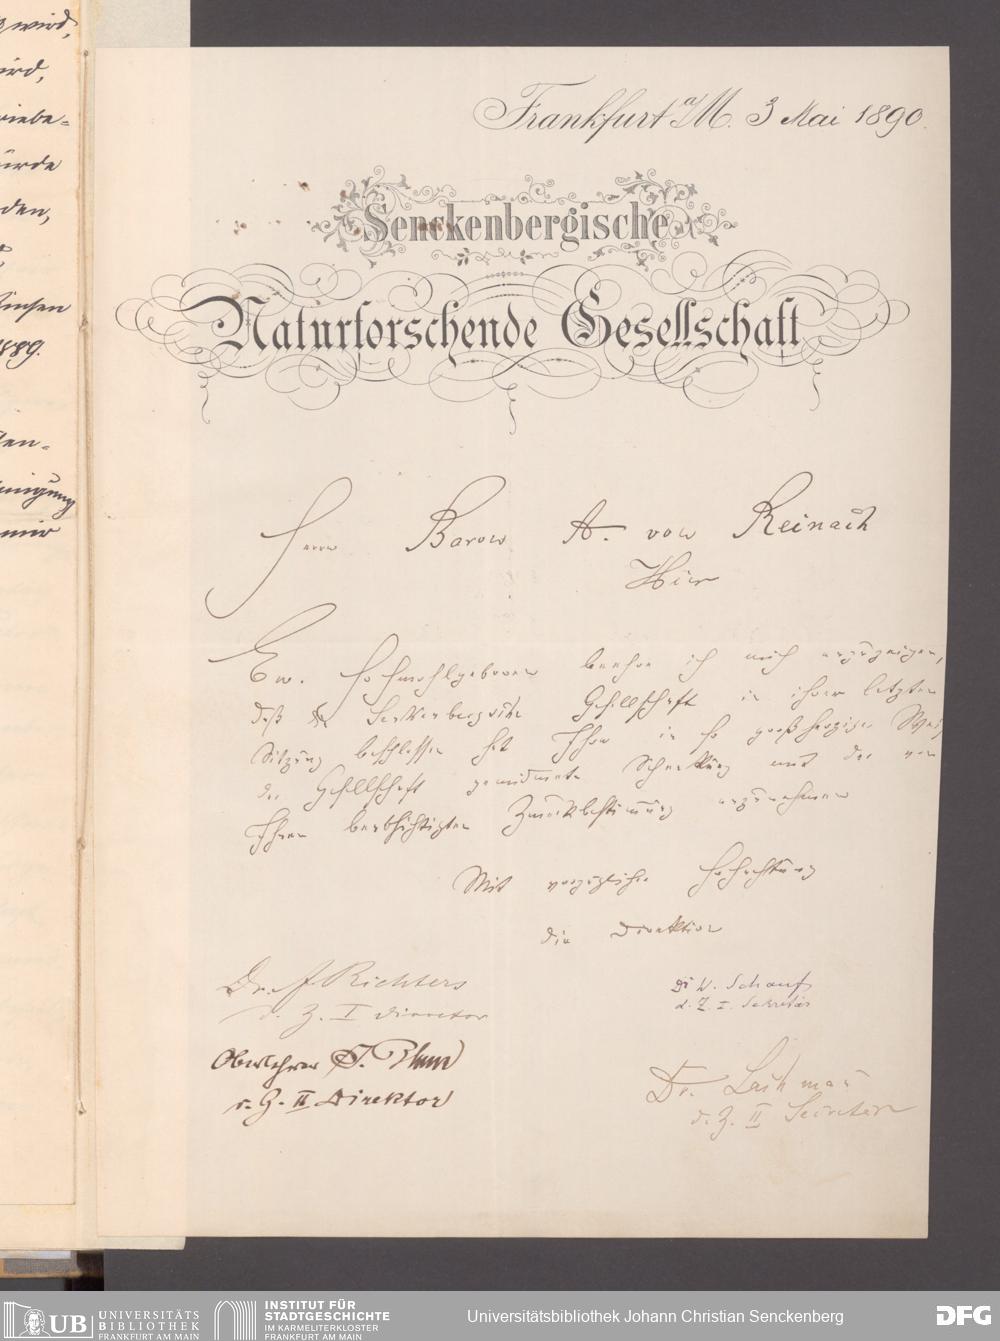 wird,
ird,
riebe=
ürde
den,
insen
1889.
en=
inigung
mir
Frankfurt a/M. 3 Mai 1890.
Senckenbergische
Naturforschende Gesellschaft
Herrn Baron A. von Reinach
Hier
Ew. Hochwohlgeboren beehre ich mich anzuzeigen,
daß die Senckenbergische Gesellschaft in ihrer letzten
Sitzung beschlossen hat Ihre in so großherziger Weise
der Gesellschaft gewidmete Schenkung mit der von
Ihnen beabsichtigten Zweckbestimmung anzunehmen
Mit vorzüglicher Hochachtung
die Direktion
Dr. F Richters
d. Z. I Director
Dr W. Schauf
d. Z. I. Sekretär
Oberlehrer J. Blum
d. Z. II Direktor
Dr. Lachmann
d. Z. II Secretär
UB UNIVERSITÄTS
BIBLIOTHEK
FRANKFURT AM MAIN
INSTITUT FÜR
STADTGESCHICHTE
IM KARMELITERKLOSTER
FRANKFURT AM MAIN
Universitätsbibliothek Johann Christian Senckenberg
DFG